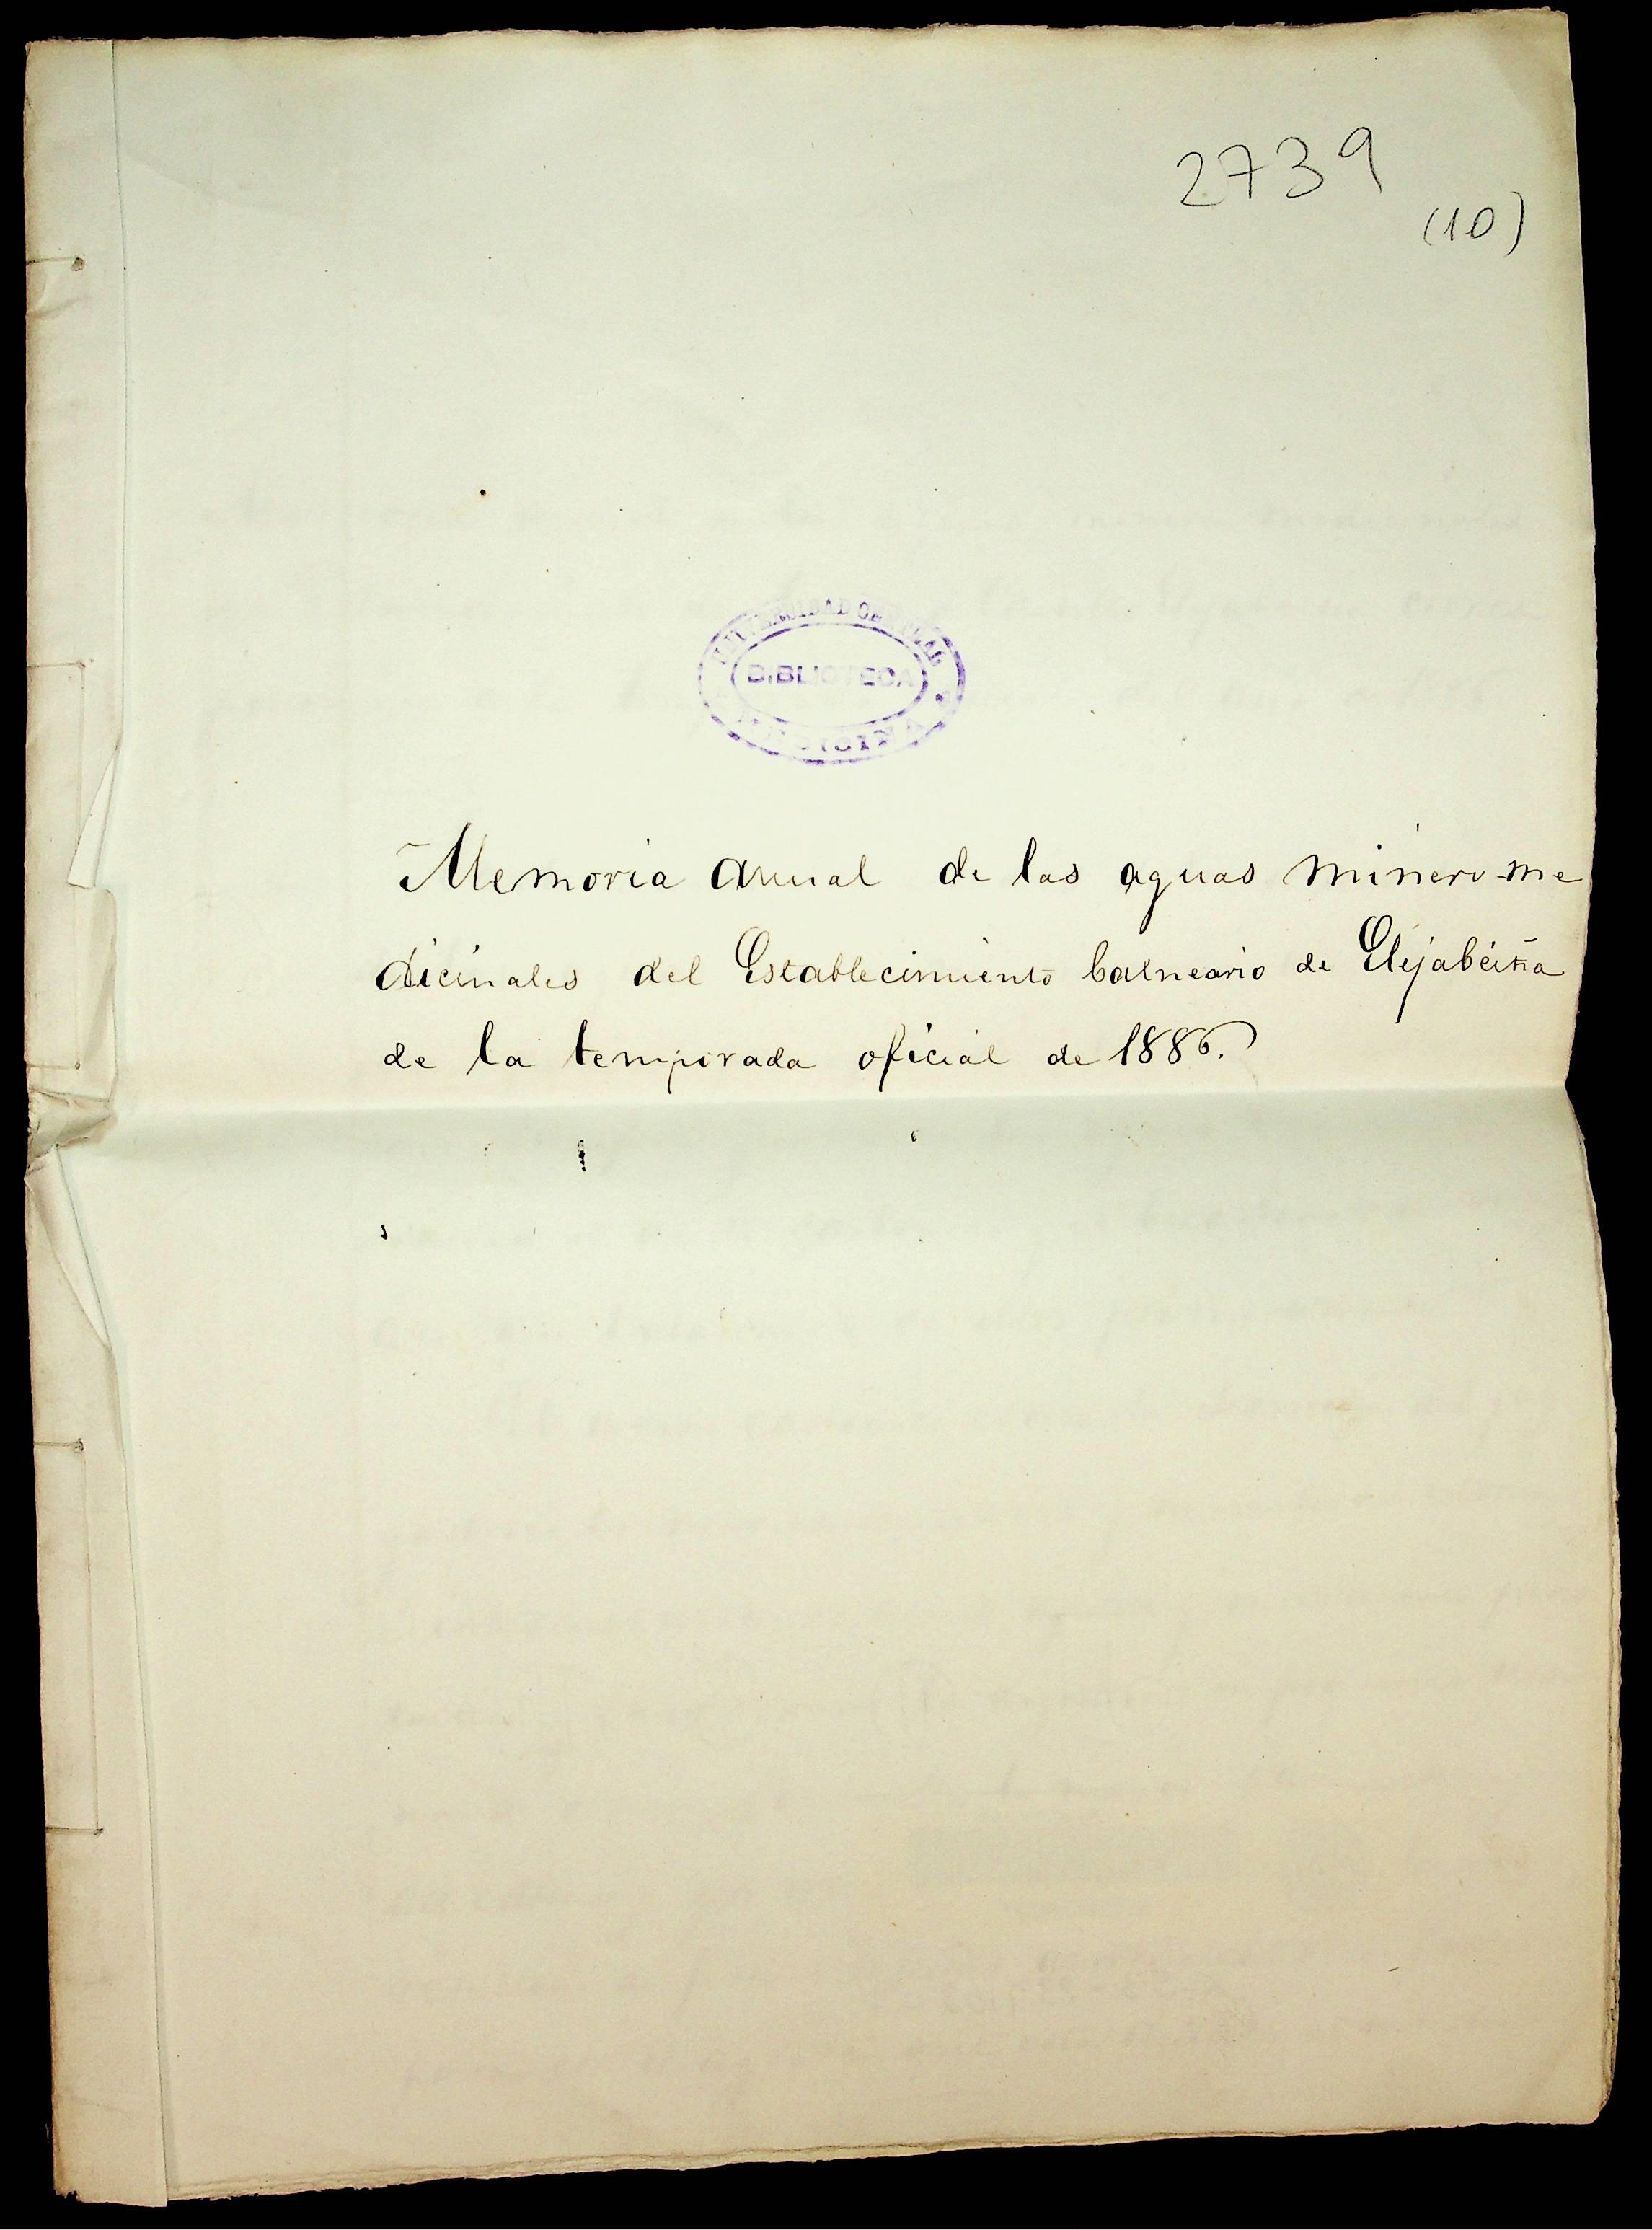 2739
(10)
UNIVERSIDAD CENTRAL
BIBLIOTECA
MEDICINA
Memoria anual de las aguas minero-me
dicinales del Establecimiento balneario de Elejabeitia
de la temporada oficial de 1886.